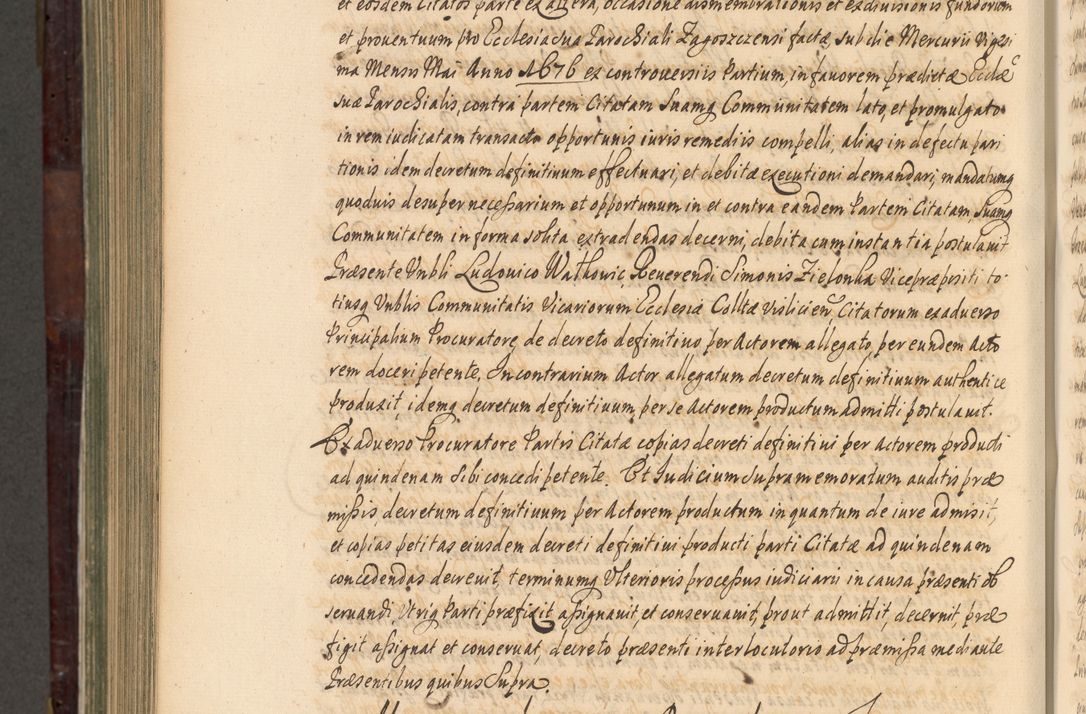 et eosdem Citatos parte ex altera, occasione dismembrationis et exdivisionis fundorum
et prouentuum pro Ecclesia sua Parochiali Zagoszczensi factæ, sub die Mercurii Vigesi
ma Mensis Maii Anno 1676 ex controuersiis Partium, in fauorem prædictæ Ecclæ
suæ Parochialis, contra partem Citatam Suamq Communitatem lato, et promulgato
in rem iudicatam transacto opportunis iuris remediis compelli, alias in defectu pari
tionis idem decretum definitiuum effectuari, et debitæ executioni demandari, mandatumq
quoduis desuper necessarium et opportunum in et contra eandem Partem Citatam, Suamq
Communitatem in forma solita extradendas decerni, debita cum instantia postulauit
Præsente Vnbli Ludouico Wathouic, Reuerendi Simonis Zielonka Vicepræpositi to
tiusq Vnblis Communitatis Vicariorum Ecclesiæ Colltæ Visliciens, Citatorum ex aduerso
Principalium Procuratore, de decreto definitiuo per Actorem allegato, per eundem Acto
rem doceri petente. In contrarium Actor allegatum decretum definitiuum authentice
produxit, idemq decretum definitiuum per se Actorem productum admitti postulauit.
Ex aduerso Procuratore Partis Citatæ copias decreti definitiui per Actorem producti
ad quindenam sibi concedi petente. Et Iudicium supramemoratum auditis præ
missis, decretum definitiuum per Actorem productum in quantum de iure admisit,
et copias petitas eiusdem decreti definitiui producti parti Citatæ ad quindenam
concedendas decreuit, terminumq Vlterioris processus iudiciarii in causa præsenti ob
seruandi Vtriq Parti præfixit assignauit et conseruauit, prout admittit, decernit, præ
figit assignat et conseruat, decreto præsenti interlocutorio ad præmissa mediante
Præsentibus quibus Supra.